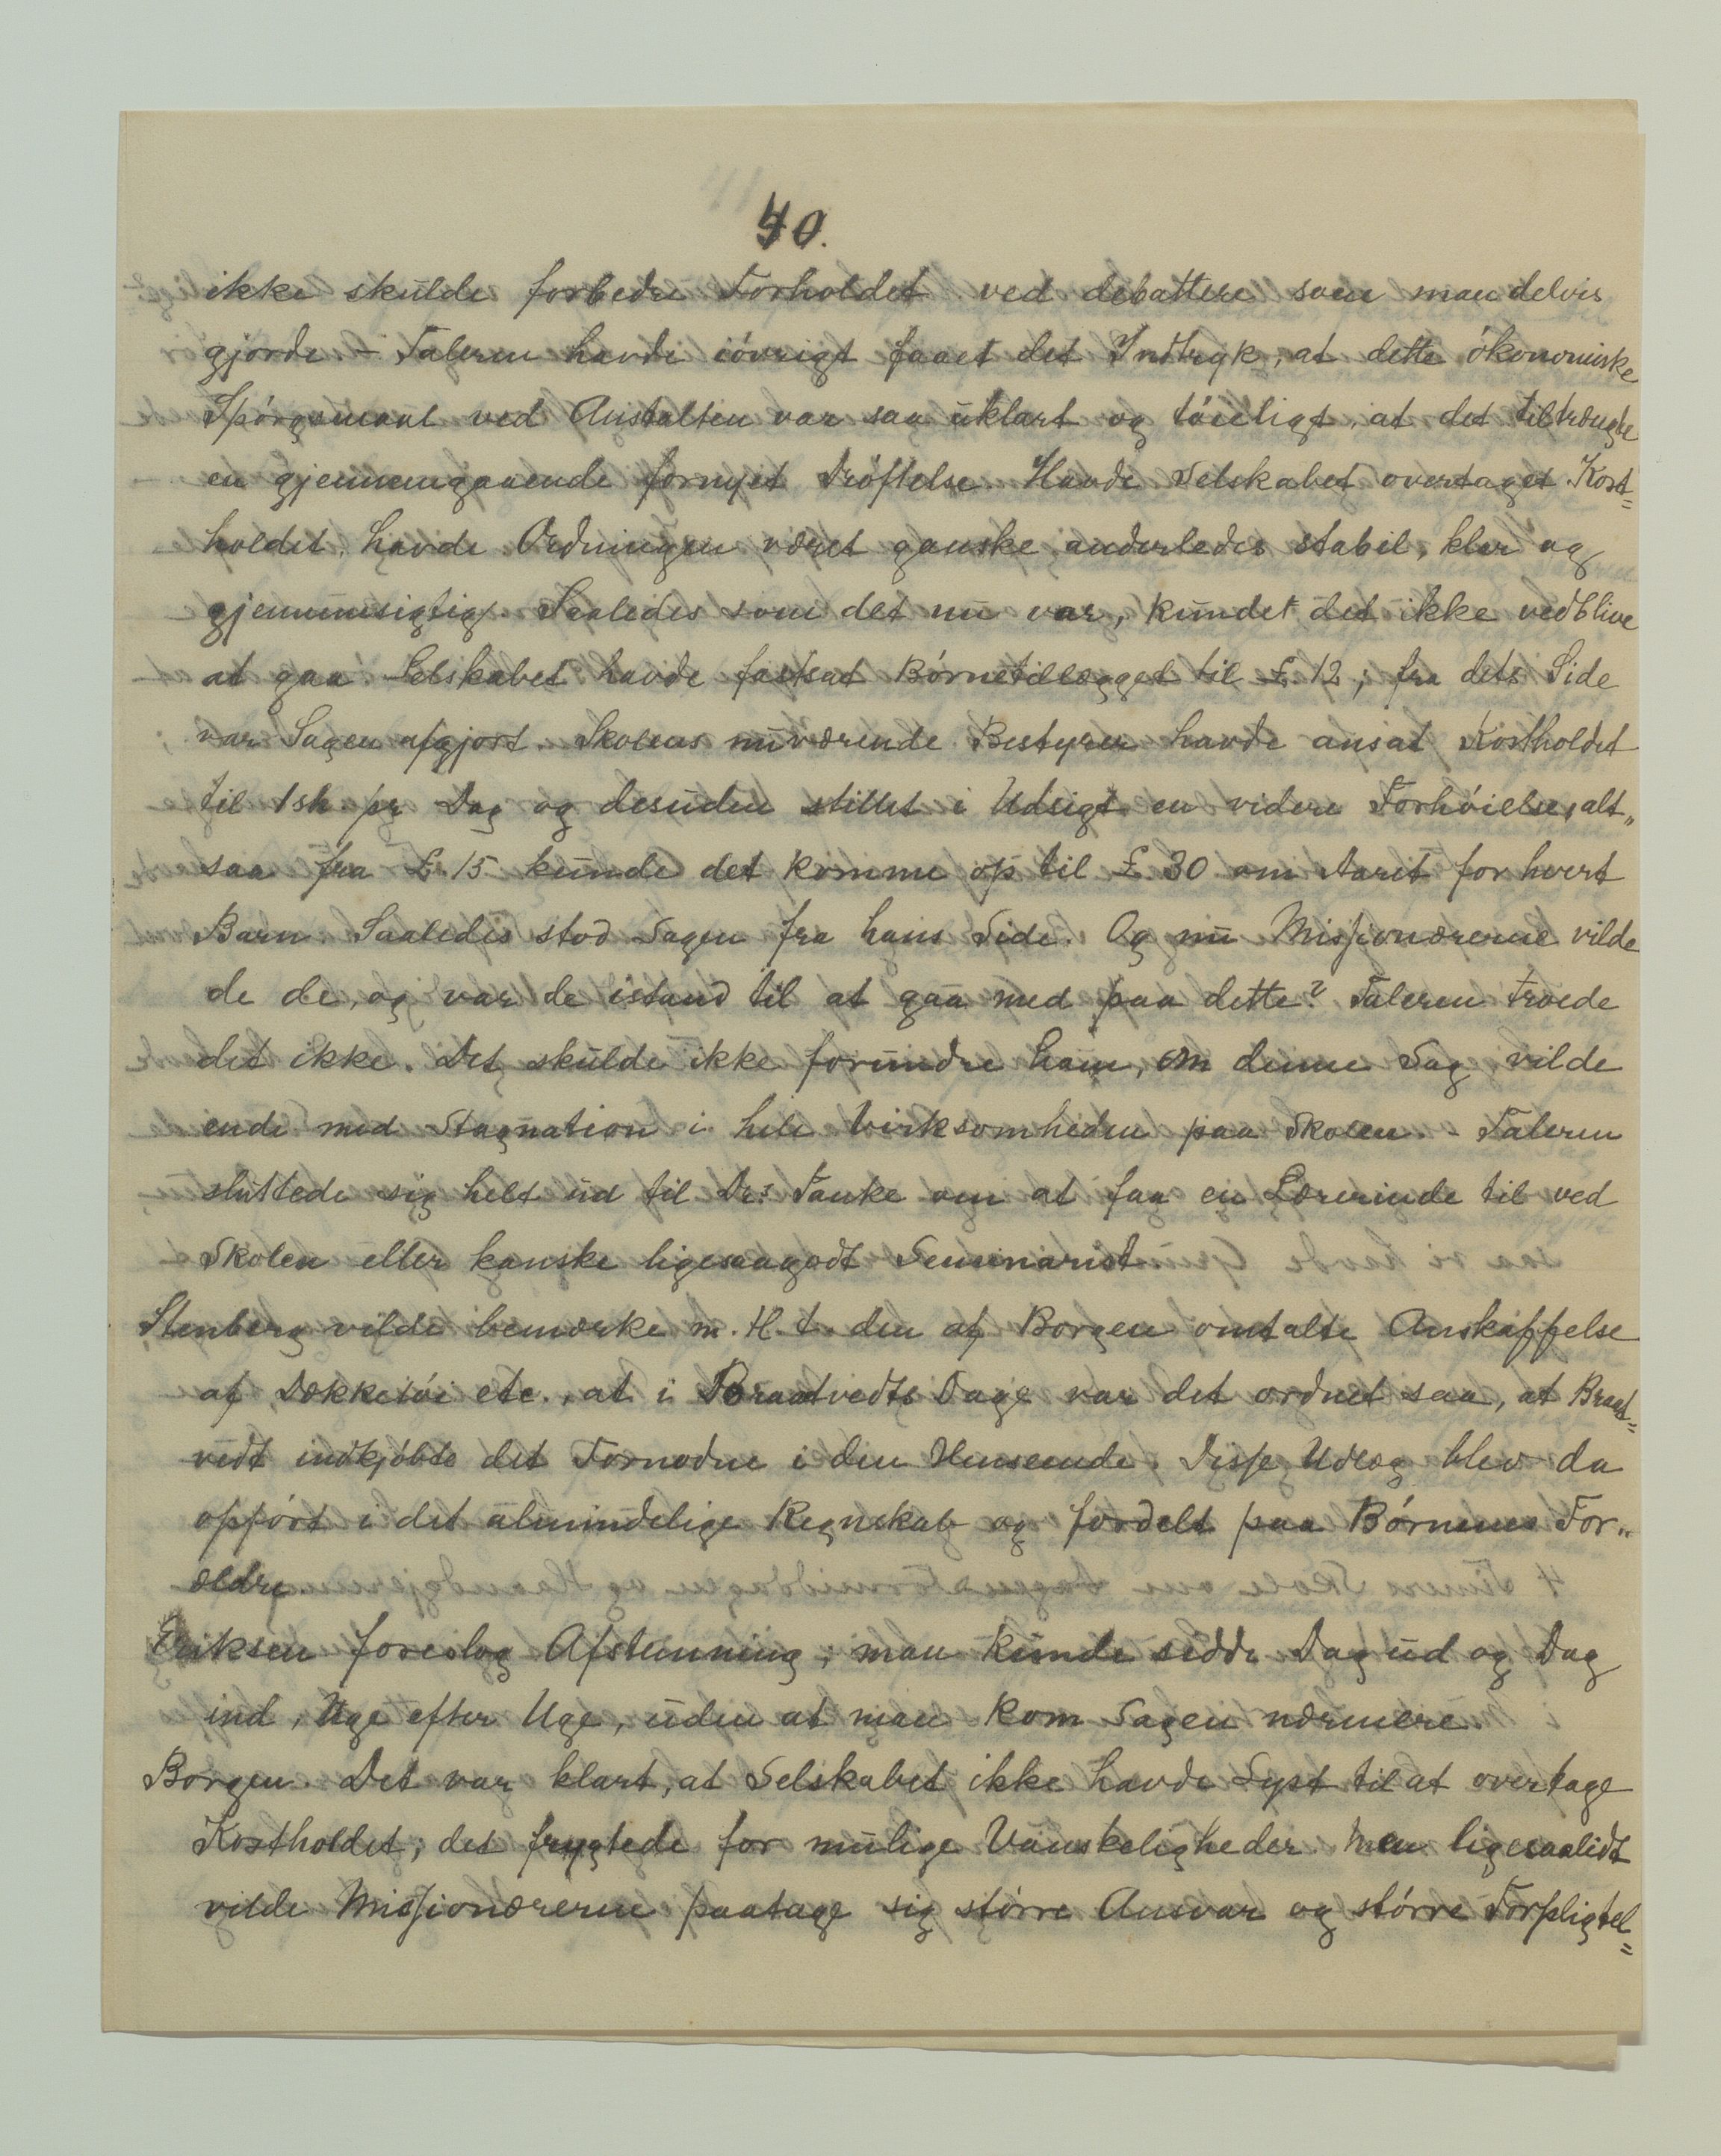 40.
ikke skulde forbedre Forholdet ved debattere som man delvis
gjorde. – Taleren havde iøvrigt faaet det Indtryk, at dette økonomiske
Spørgsmaal ved Anstalten var saa uklart og tøieligt, at det tiltrængte
en gjennemgaaende fornyet Drøftelse. Havde Selskabet overtaget Kost=
holdet, havde Ordningen været ganske anderledes stabil, klar og
gjennemsigtig. Saaledes som det nu var, kunde det ikke vedblive
at gaa. Selskabet havde fastsat Børnetillægget til £ 12; fra dets Side
var Sagen afgjort. Skolens nuværende Bestyrer havde ansat Kostholdet
til 1 sh. pr Dag og desuden stillet i Udsigt en videre Forhøielse, alt„
saa fra £ 15 kunde det komme op til £ 30 om Aaret for hvert
Barn. Saaledes stod Sagen fra hans Side. Og nu Missionærerne vilde
de de, og var de istand til at gaa med paa dette? Taleren troede
det ikke. Det skulde ikke forundre ham, om denne Sag vilde
ende med Stagnation i hele Virksomheden paa Skolen. – Taleren
sluttede sig helt ud til Drs Tanke om at faa en Lærerinde til ved
Skolen eller kanske ligesaagodt Seminarist.
Stenberg vilde bemærke m. H. t. den af Borgen omtalte Anskaffelse
af Dækketøi etc., at i Braatvedts Dage var det ordnet saa, at Braat=
vedt indkjøbte det Fornødne i den Henseende. Disse Udlæg blev da
opført i det almindelige Regnskab og fordelt paa Børnenes For„
ældre.
Eriksen foreslog Afstemning; man kunde sidde Dag ud og Dag
ind, Uge efter Uge, uden at man kom Sagen nærmere.
Borgen. Det var klart, at Selskabet ikke havde Lyst til at overtage
Kostholdet; det frygtede for mulige Vanskeligheder. Men ligesaalidt
vilde Missionærerne paatage sig større Ansvar og større Forpligtel=